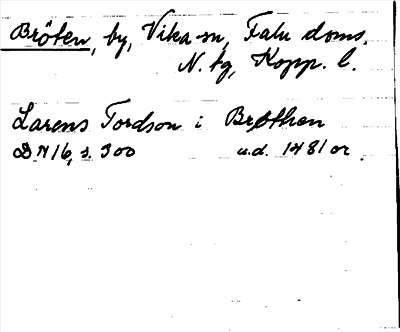 Bröten, by, Vika sn, Falu doms.
N. tg, Kopp. l.
Larens Tordson i Brøthen
DN 16, s. 300 u.d. 1481 or.